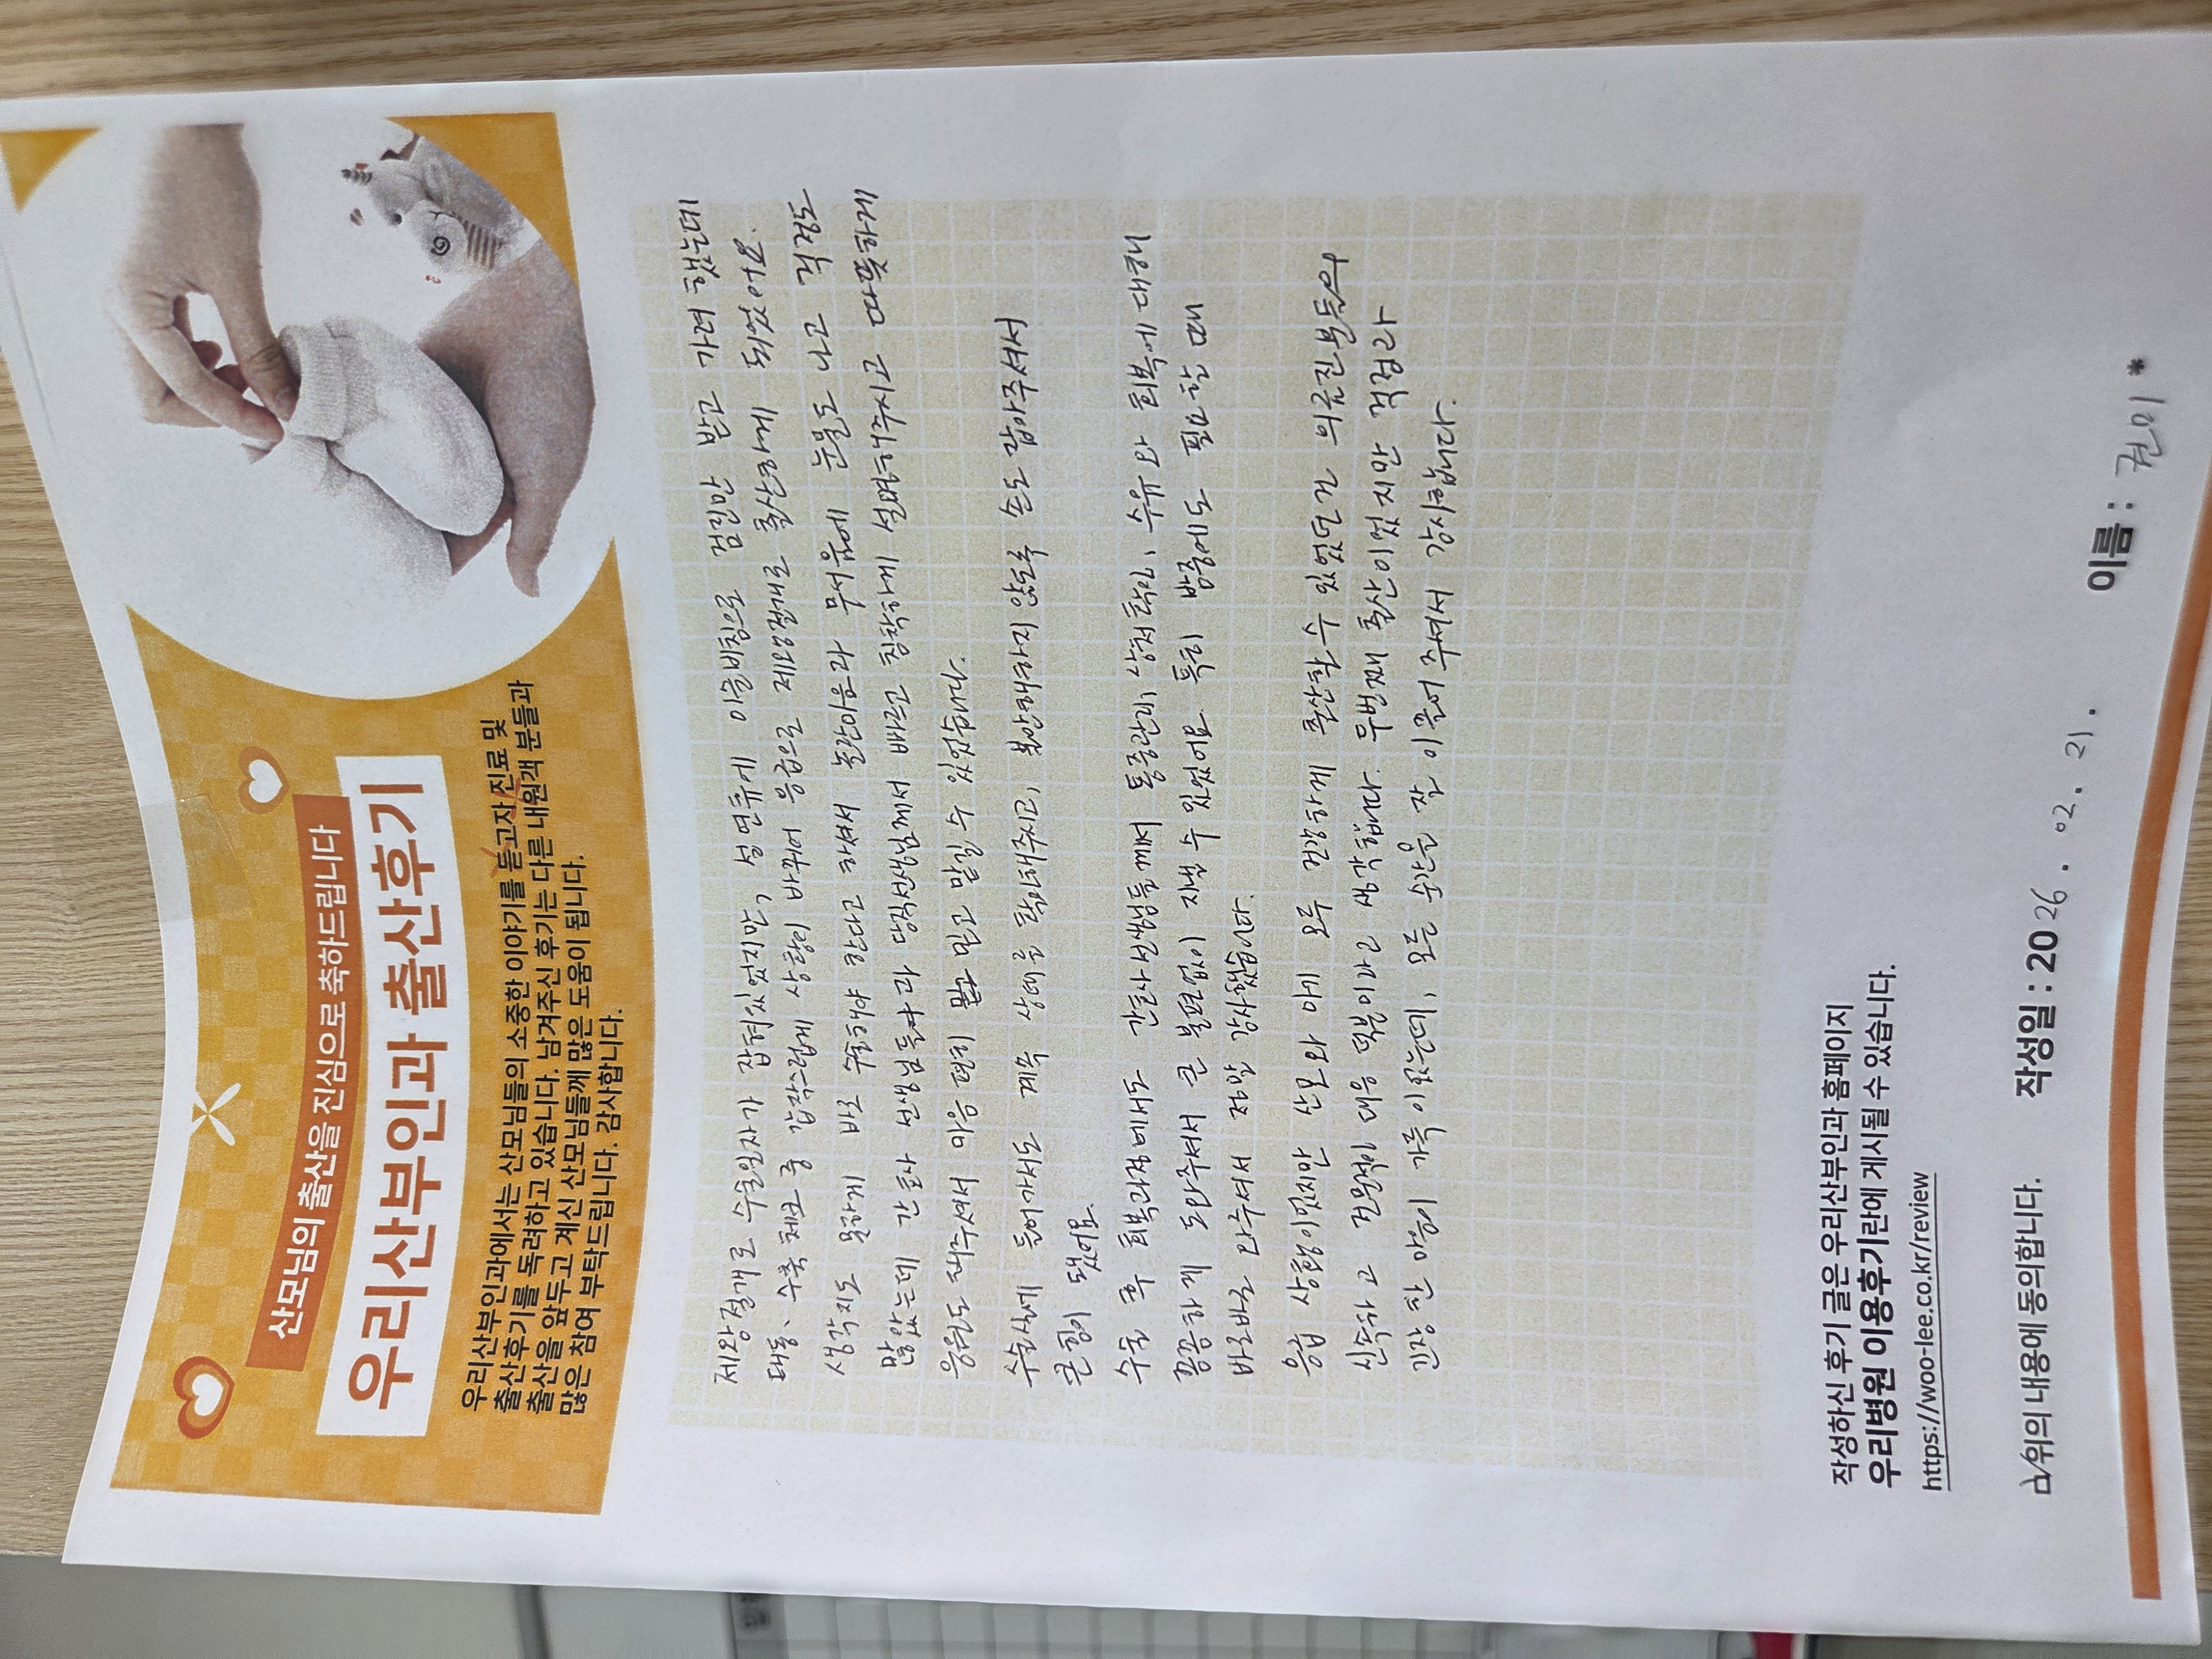 산모님의 출산을 진심으로 축하드립니다
우리산부인과 출산후기
우리산부인과에서는 산모님들의 소중한 이야기를 듣고자 진료 및
출산후기를 독려하고 있습니다. 남겨주신 후기는 다른 내원객 분들과
출산을 앞두고 계신 산모님들께 많은 도움이 됩니다.
많은 참여 부탁드립니다. 감사합니다.
제왕절개로 수술일자가 잡혀있었지만, 설연휴에 이슬비침으로 검진만 받고 가려 했는데
태동, 수축 체크 중 갑작스럽게 상황이 바뀌어 응급으로 제왕절개로 출산하게 되었어요.
생각지도 못하게 바로 수술해야 한다고 하셔서 놀란마음과 무서움에 눈물도 나고 걱정도
많았는데 간호사 선생님들과 당직선생님께서 빠르고 침착하게 설명해주시고 따뜻하게
응원도 해주셔서 마음 편히 믿고 맡길 수 있었습니다.
수술실에 들어가서도 계속 상태를 확인해주시고, 불안해하지 않도록 손도 잡아주셔서
큰 힘이 됐어요
수술 후 회복과정에서도 간호사 선생님들께서 통증관리, 상처확인, 수유와 회복에 대해
꼼꼼하게 도와주셔서 큰 불편없이 지낼 수 있었어요. 특히 밤중에도 필요할 때
바로바로 와주셔서 정말 감사했습니다.
응급 상황이었지만 산모와 아기 모두 건강하게 출산할 수 있었던건 의료진분들의
신속하고 전문적인 대응 덕분이라고 생각합니다. 두번째 출산이었지만 걱정과
긴장한 마음이 가득이었는데, 모든 순간을 잘 이끌어 주셔서 감사합니다.
작성하신 후기 글은 우리산부인과 홈페이지
우리병원 이용후기란에 게시될 수 있습니다.
https://woo-lee.co.kr/review
위의 내용에 동의합니다. 작성일 : 2026. 02. 21. 이름 : 권미 *